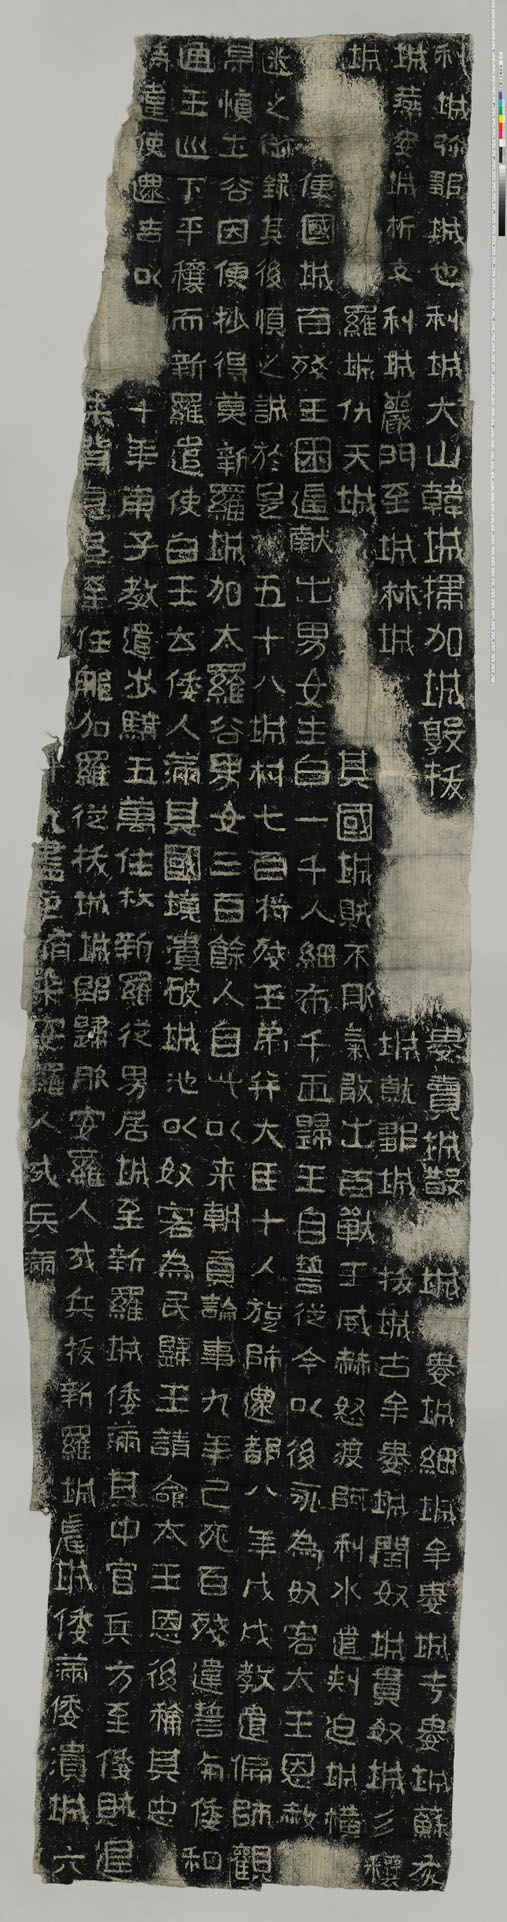 利城弥鄒城也利城大山韓城掃加城敦拔婁賣城散城婁城細城牟婁城于婁城蘇灰
城燕婁城析支利城巖門至城林城城就鄒城拔城古牟婁城閏奴城貫奴城彡穰
城羅城仇天城其國城賊不服氣敢出百戰王威赫怒渡阿利水遣刺迫城橫
便國城百殘王困逼献出男女生白一千人細布千匝歸王自誓從今以後永為奴客太王恩赦
迷之御錄其後順之誠於是五十八城村七百将殘王弟并大臣十人旋師還都八年戊戌教遣偏師觀
帛慎土谷因便抄得莫新羅城加太羅谷男女三百餘人自此以来朝貢論事九年己亥百殘違誓与倭和
通王巡下平穰而新羅遣使白王云倭人滿其國境潰破城池以奴客為民歸王請命太王恩後稱其忠
遣使還告以十年庚子教遣步騎五萬住救新羅從男居城至新羅城倭滿其中官兵方至倭賊退
来背息追至任那加羅從拔城城即歸服安羅人戍兵拔新羅城農城倭滿倭潰城六
安羅人戍兵滿